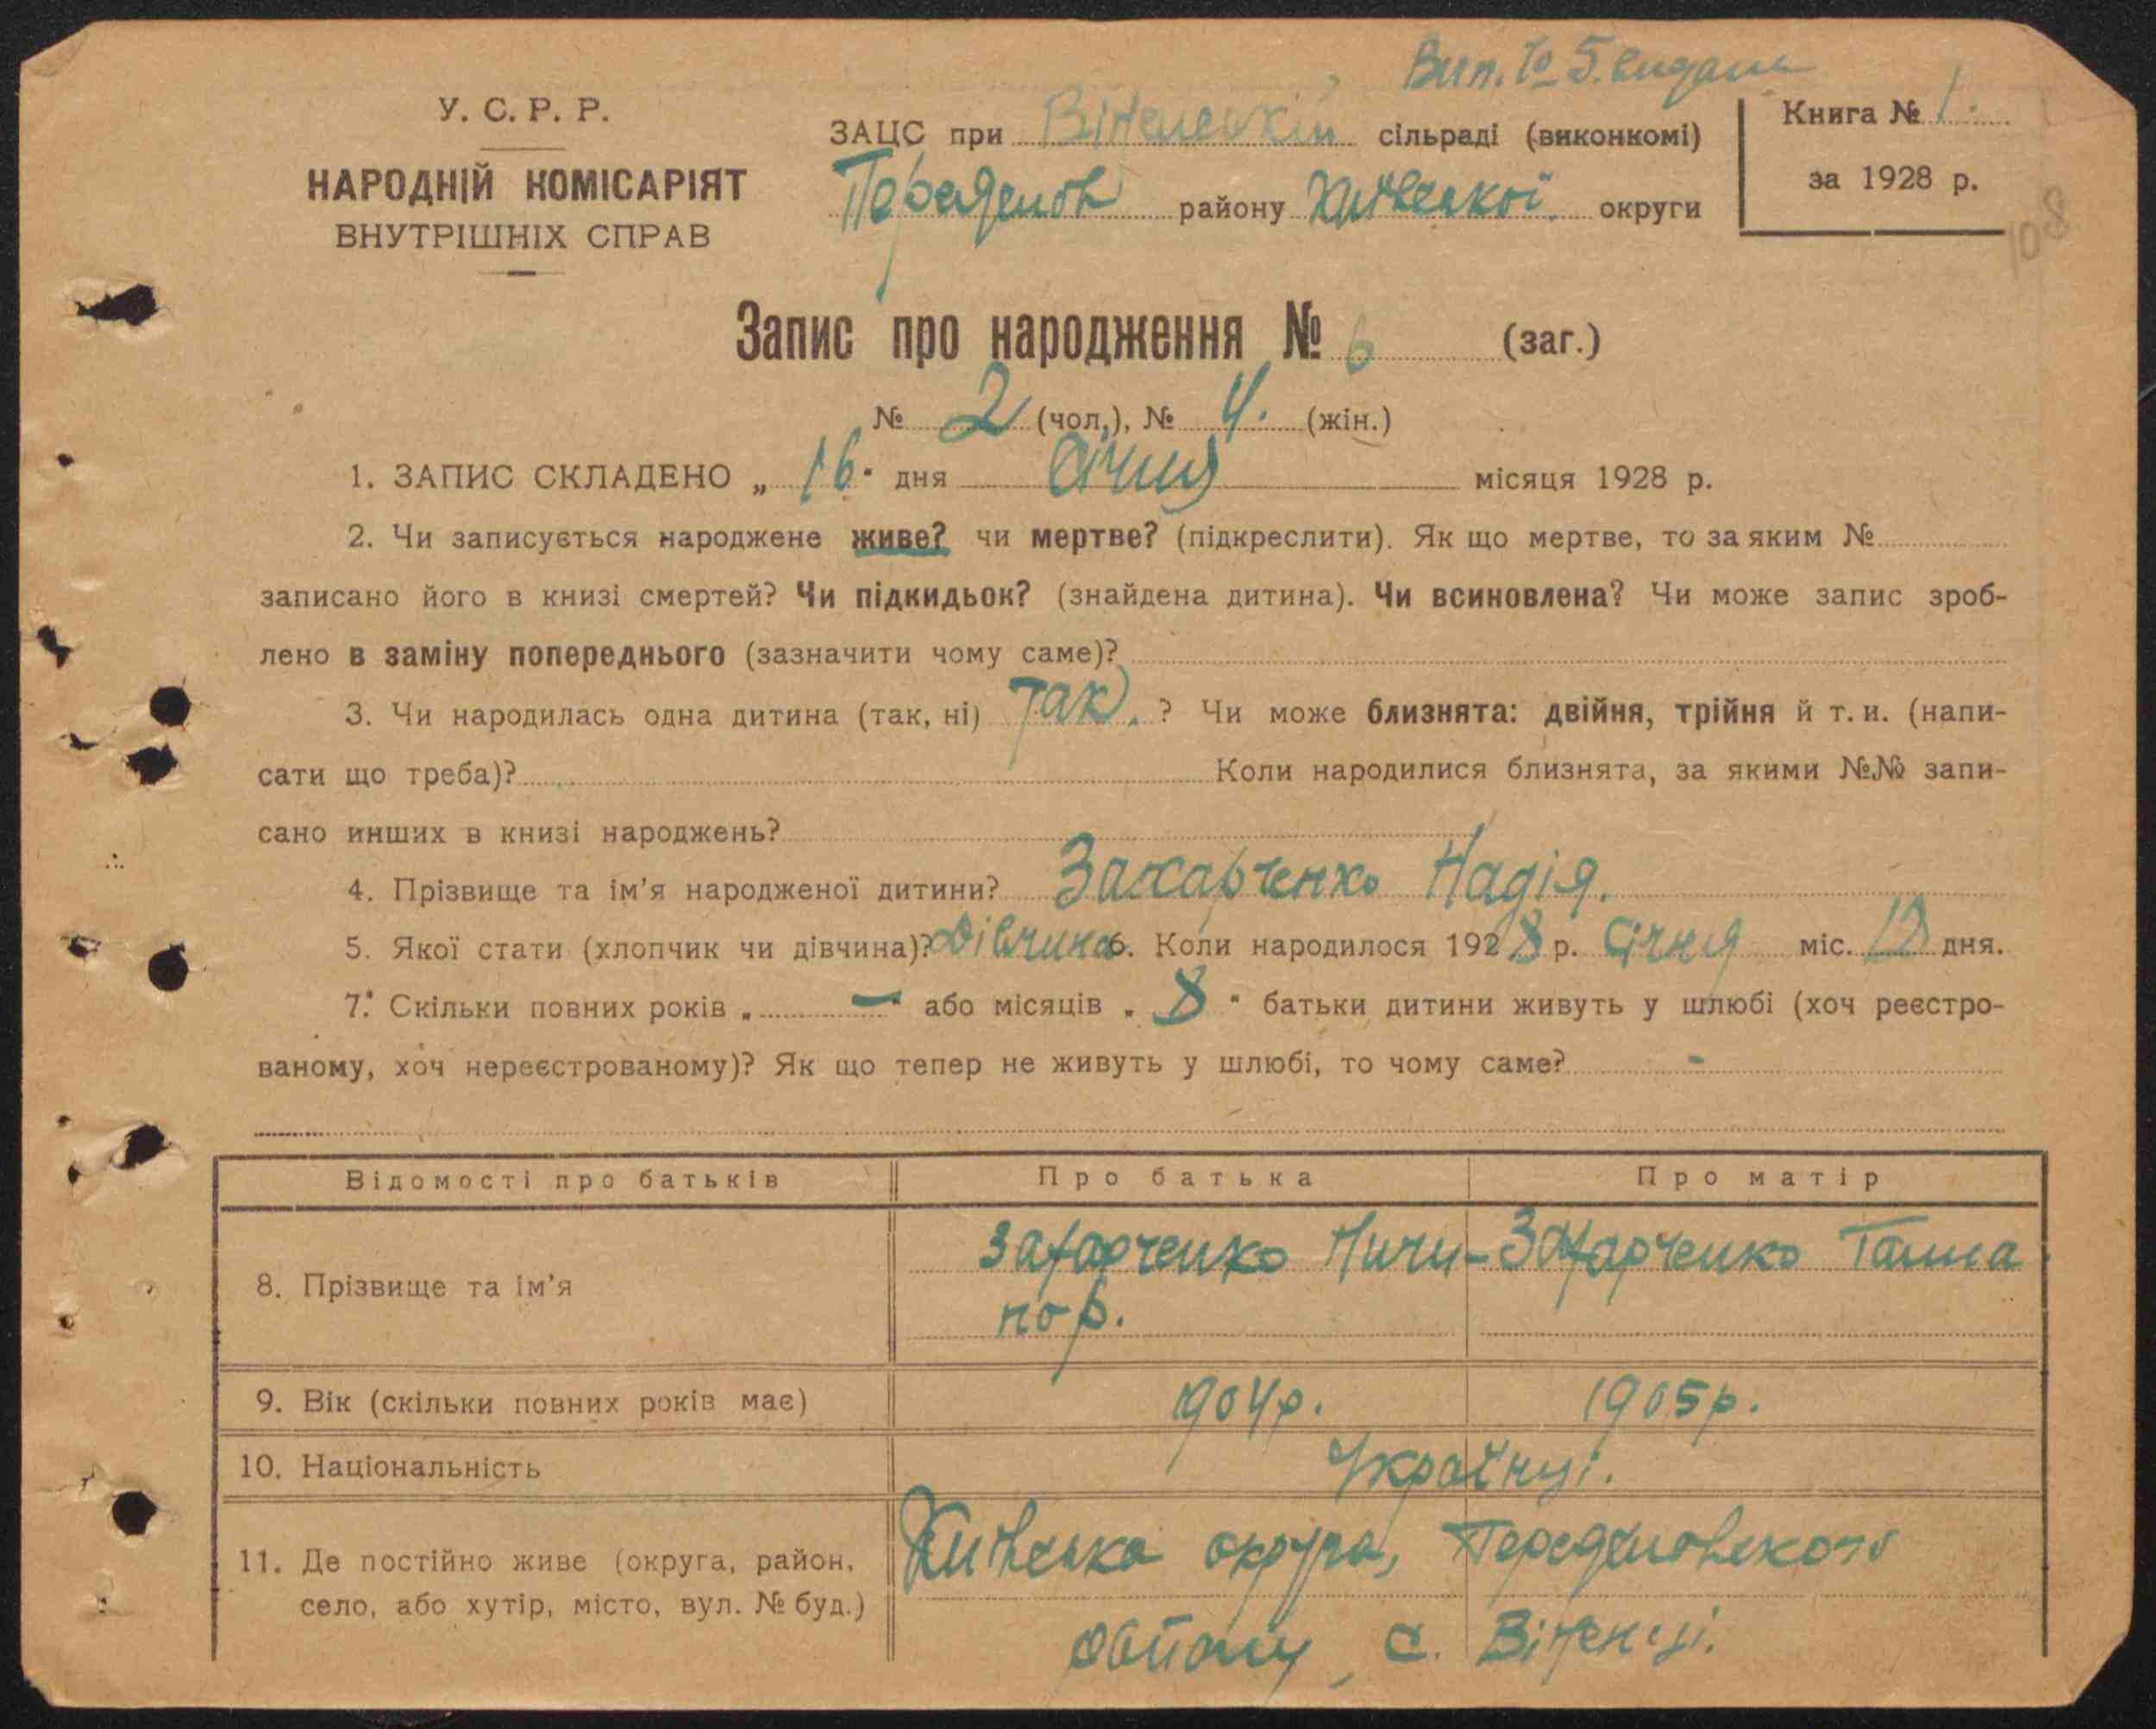 Вип. № 5. видана
У. С. Р. Р.
НАРОДНІЙ КОМІСАРІЯТ
ВНУТРІШНІХ СПРАВ
ЗАЦС при сільраді (виконкомі)
району Київської округи
Книга № 1.
за 1928 р.
108
Запис про народження № 6 (заг.)
№ 2 (чол.), № 4. (жін.)
1. ЗАПИС СКЛАДЕНО „ 16 " дня січня місяця 1928 р.
2. Чи записується народжене живе? чи мертве? (підкреслити). Як що мертве, то за яким №
записано його в книзі смертей? Чи підкидьок? (знайдена дитина). Чи всиновлена? Чи може запис зроб-
лено в заміну попереднього (зазначити чому саме)?
3. Чи народилась одна дитина (так, ні) Так. ? Чи може близнята: двійня, трійня й т. и. (напи-
сати що треба)? Коли народилися близнята, за якими №№ запи-
сано инших в книзі народжень?
4. Прізвище та ім'я народженої дитини? Захарченко Надія.
5. Якої стати (хлопчик чи дівчина)? Дівчина 6. Коли народилося 1928 р. Січня міс. дня.
7. Скільки повних років „ — " або місяців „ 8 " батьки дитини живуть у шлюбі (хоч реєстро-
ваному, хоч нереєстрованому)? Як що тепер не живуть у шлюбі, то чому саме? -
Відомості про батьків Про батька Про матір
8. Прізвище та ім'я Захарченко Ничи- Захарченко Ганна
пор.
9. Вік (скільки повних років має) 1904р. 1905р.
10. Національність Українці.
11. Де постійно живе (округа, район, Київська округа,
село, або хутір, місто, вул. № буд.) району, с.